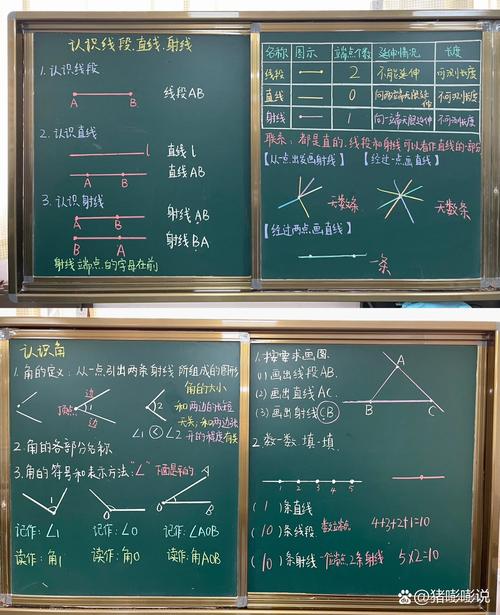 认识线段、直线、射线
1.认识线段
A B 线段AB
2.认识直线
l 直线l
A B 直线AB
3.认识射线
A B 射线AB
B A 射线BA
射线端点的字母在前
名称 图示 端点个数 延伸情况 长度
线段 2 不能延伸 可测长度
直线 0 向两端无限延伸 不可测长度
射线 1 向一端无限延伸 不可测长度
联系：都是直的，线段和射线可以看作直线的一部分
【从一点出发画射线】 【经过一点画直线】
无数条 无数条
【经过两点画直线】
一条
认识角
1.角的定义：从一点引出两条射线所组成的图形
边
顶点 1
边
2
角的大小
和两边的长短
无关，和两边张
开的程度有关
∠1 < ∠2
2.角的各部分名称
3.角的符号和表示方法："∠"
1
O
A
O B
记作：∠1 记作：∠O 记作：∠AOB
读作：角1 读作：角O 读作：角AOB
1.按要求画图。
(1)画出线段AB.
(2)画出直线AC.
(3)画出射线CB
A
B C
2.数一数，填一填
1 2 3 4 5
(1)条直线
(10)条线段 4+3+2+1=10
(10)条射线 一个端点2条射线 5×2=10
头条 @猪嘭嘭说